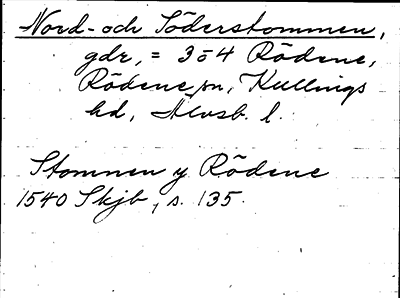 Nord- och Söderstommen,
gdr, = 3 o 4 Rödene,
Rödene sn, Kullings
hd, Älvsb. l.
Stommen y Rödene
1540 Skjb, s. 135.